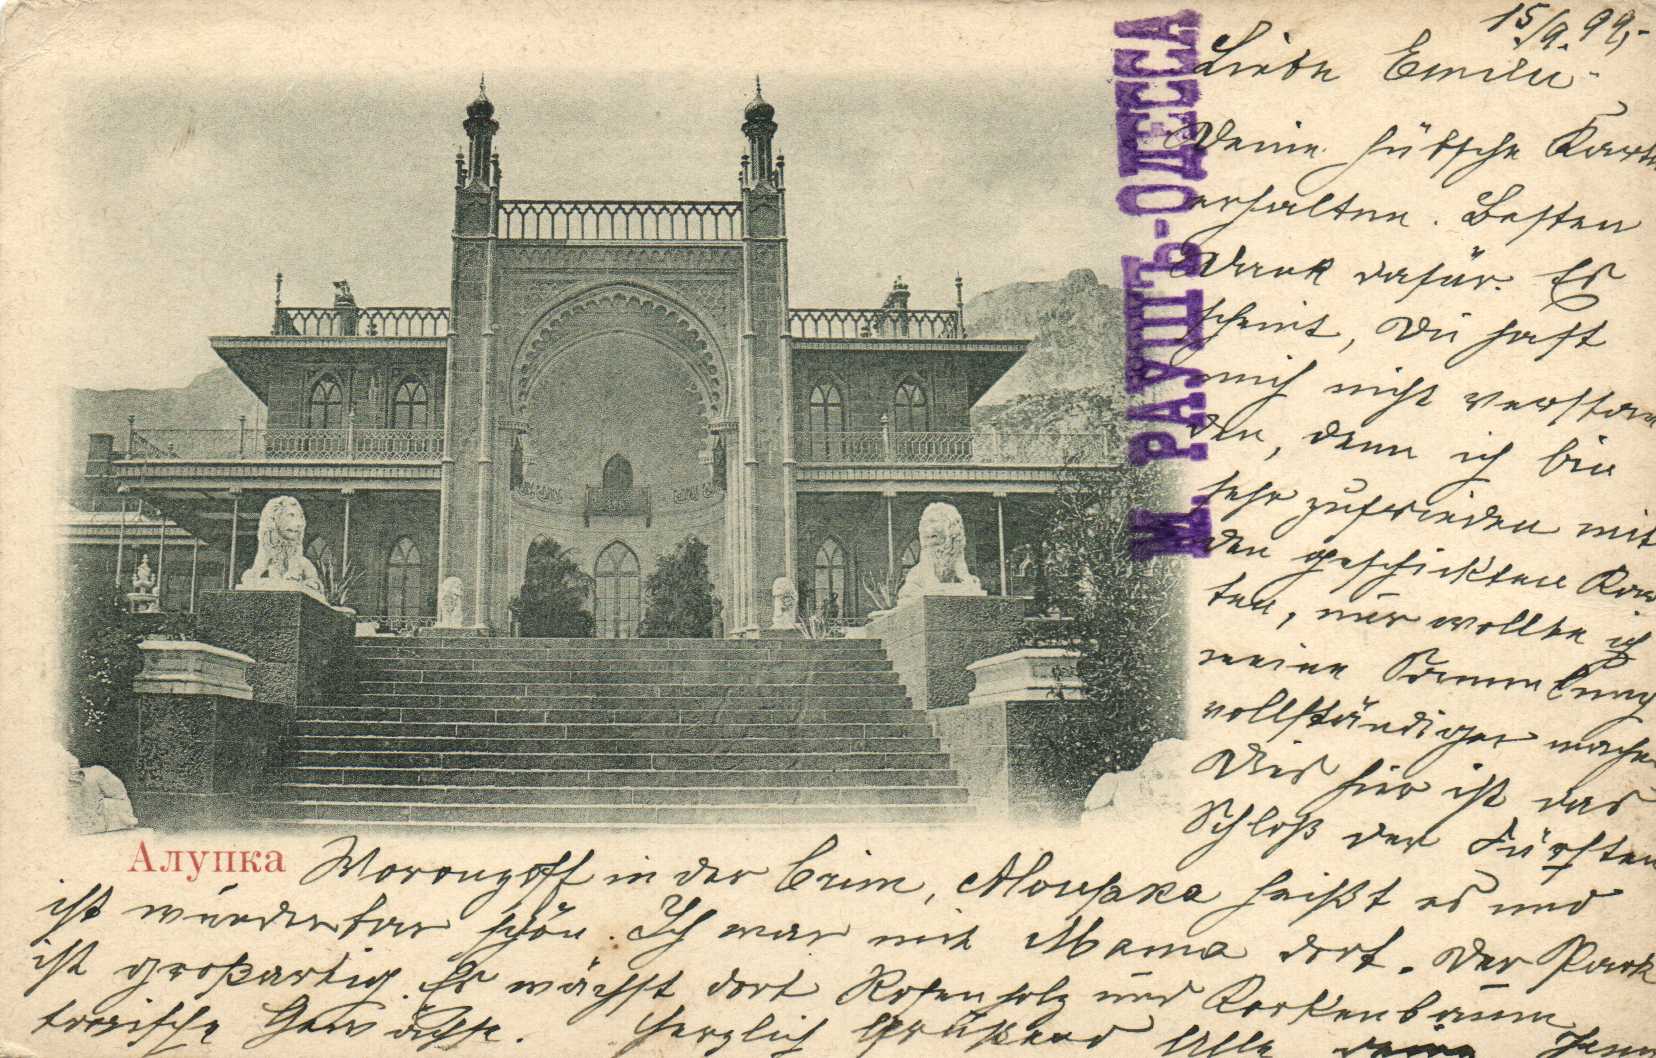 15/9. 99,-
Liebe Emilie
Deine hübsche Karte
erhalten. Besten
Dank dafür. Es
scheint, Du hast
mich nicht verstan
den, denn ich bin
sehr zufrieden mit
den geschickten Kar
ten, nur wollte ich
meine Sammlung
vollständiger machen
Dies hier ist das
Schloß der Fürsten
Woronzoff in der Crim, Aloupka heißt es und
ist wunderbar schön. Ich war mit Mama dort. Der Park
ist großartig. Es wächst dort Rosenholz und Korkenbäume
Herzlich grüßend Alle
М. РАУШЪ-ОДЕССА
Алупка